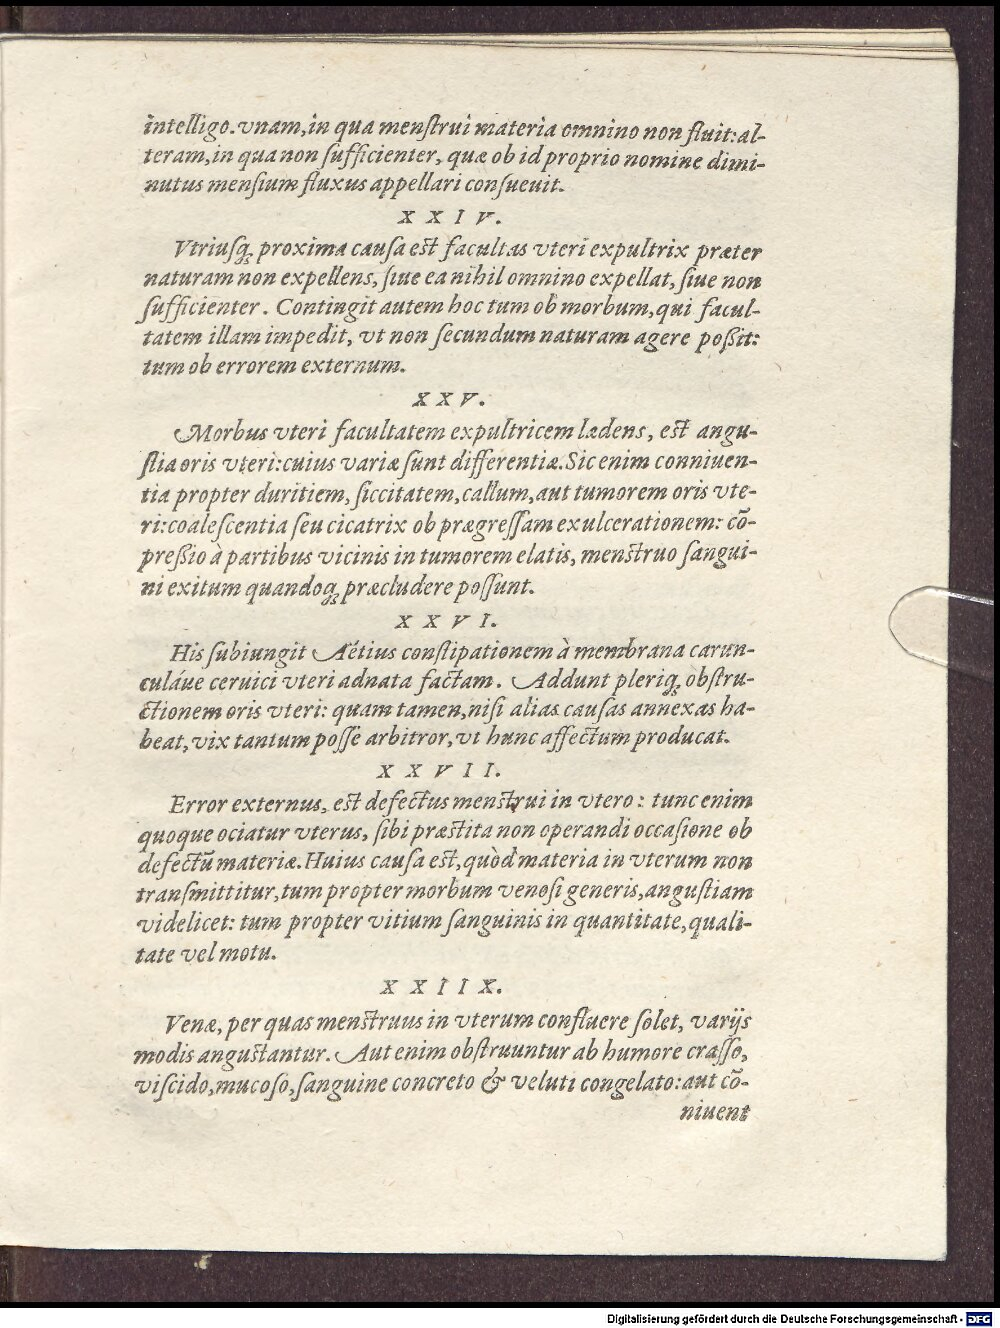 intelligo. vnam, in qua menſtrui materia omnino non fluit: al-
teram, in qua non ſufficienter, quæ ob id proprio nomine dimi-
nutus menſium fluxus appellari conſueuit.
X X I V.
Vtriuſq́; proxima cauſa eſt facultas vteri expultrix præter
naturam non expellens, ſiue ea nihil omnino expellat, ſiue non
ſufficienter. Contingit autem hoc tum ob morbum, qui facul-
tatem illam impedit, vt non ſecundum naturam agere poßit:
tum ob errorem externum.
X X V.
Morbus vteri facultatem expultricem lædens, eſt angu-
ſtia oris vteri: cuius variæ ſunt differentiæ. Sic enim conniuen-
tia propter duritiem, ſiccitatem, callum, aut tumorem oris vte-
ri: coaleſcentia ſeu cicatrix ob prægreſſam exulcerationem: cō-
preßio à partibus vicinis in tumorem elatis, menſtruo ſangui-
ni exitum quandoq́; præcludere poſſunt.
X X V I.
His ſubiungit Aëtius conſtipationem à membrana carun-
culáue ceruici vteri adnata factam. Addunt pleriq́; obſtru-
ctionem oris vteri: quam tamen, niſi alias cauſas annexas ha-
beat, vix tantum poſſe arbitror, vt hunc affectum producat.
X X V I I.
Error externus, eſt defectus menſtrui in vtero: tunc enim
quoque ociatur vterus, ſibi præſtita non operandi occaſione ob
defectū materiæ. Huius cauſa eſt, quòd materia in vterum non
tranſmittitur, tum propter morbum venoſi generis, anguſtiam
videlicet: tum propter vitium ſanguinis in quantitate, quali-
tate vel motu.
X X I I X.
Venæ, per quas menſtruus in vterum confluere ſolet, varijs
modis anguſtantur. Aut enim obſtruuntur ab humore craſſo,
viſcido, mucoſo, ſanguine concreto & veluti congelato: aut cō-
niuent
Digitalisierung gefördert durch die Deutsche Forschungsgemeinschaft - DFG